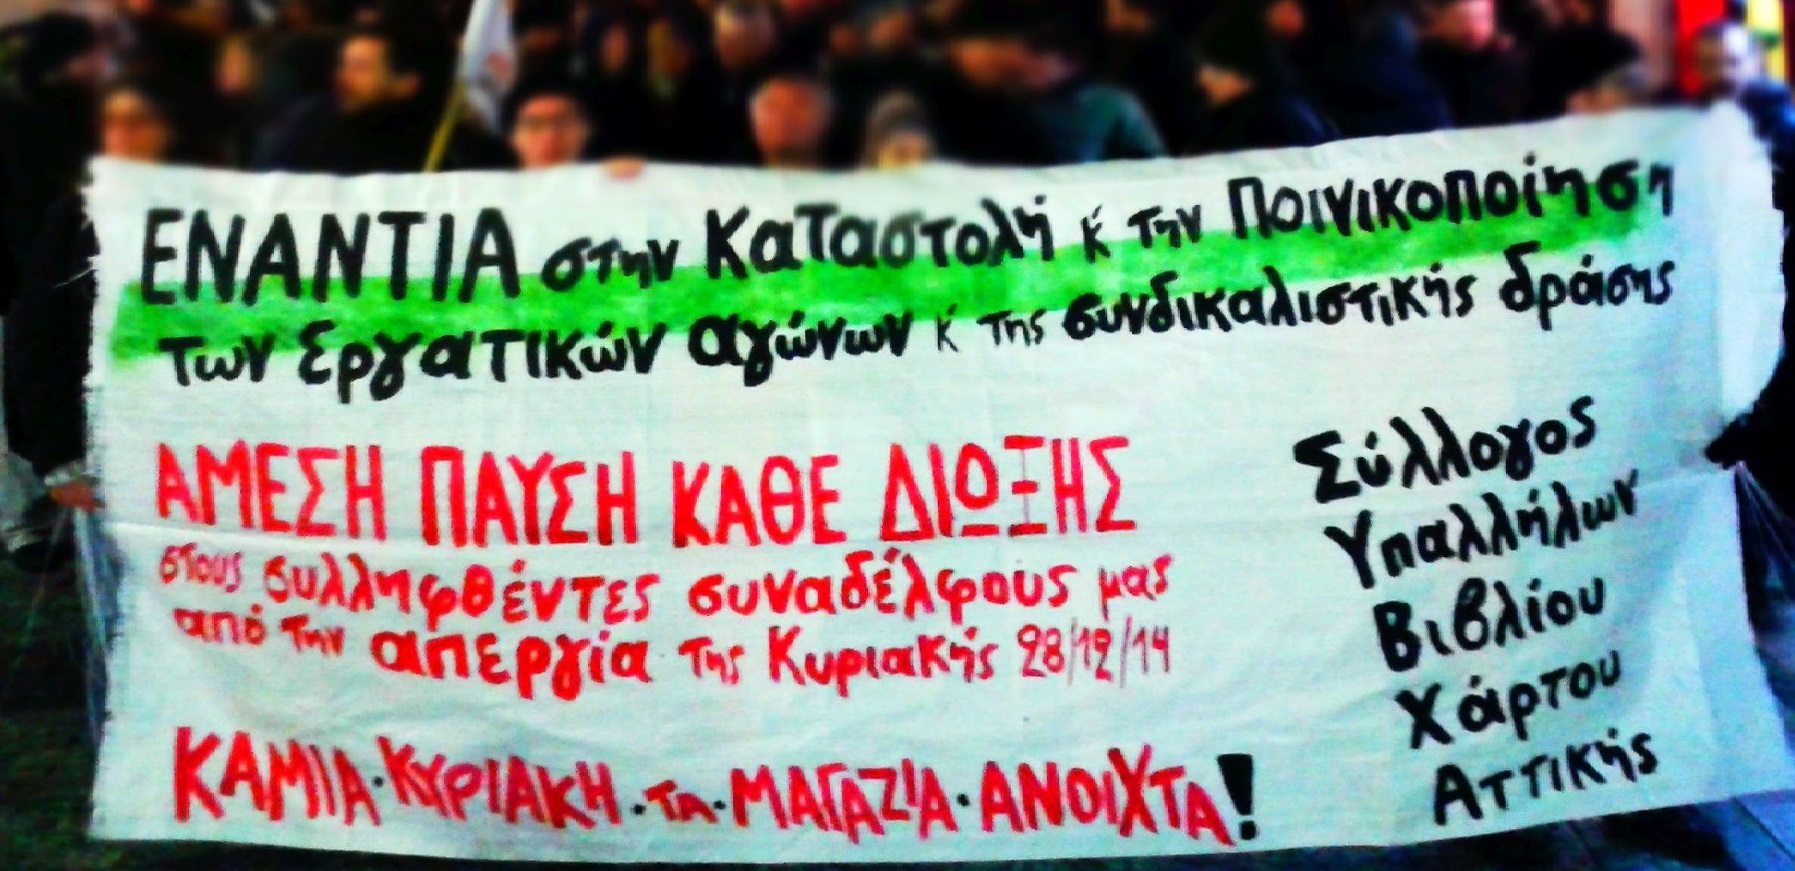 ΕΝΑΝΤΙΑ στην Καταστολή κ' την Ποινικοποίηση
των εργατικών αγώνων κ' της συνδικαλιστικής δράσης
ΑΜΕΣΗ ΠΑΥΣΗ ΚΑΘΕ ΔΙΩΞΗΣ
στους συλληφθέντες συναδέλφους μας
από την απεργία της Κυριακής 28/12/14
ΚΑΜΙΑ·ΚΥΡΙΑΚΗ·ΤΑ·ΜΑΓΑΖΙΑ·ΑΝΟΙΧΤΑ!
Σύλλογος
Υπαλλήλων
Βιβλίου
Χάρτου
Αττικής